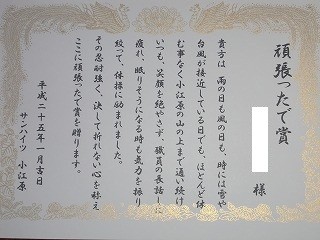 頑張ったで賞
様
貴方は 雨の日も風の日も、時には雪や
台風が接近している日でも、ほとんど休
む事なく小江原の山の上まで通い続け
いつも、笑顔を絶やさず、職員の長話しに
疲れ、眠りそうになる時も気力を振り
絞って、体操に励まれました。
その忍耐強く、決して折れない心を称え
ここに頑張ったで賞を贈ります。
平成二十五年一月吉日
サンハイツ 小江原